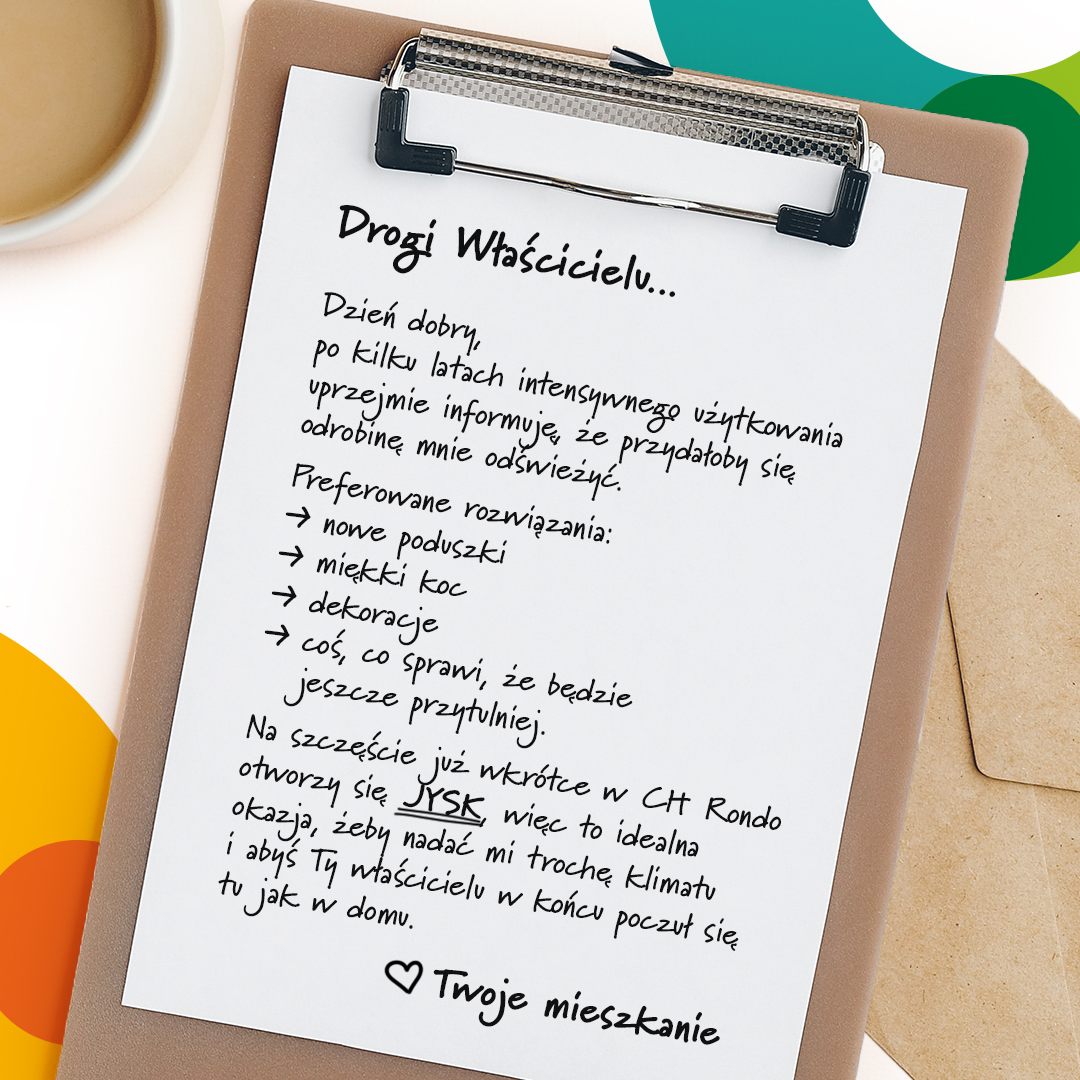 Drogi Właścicielu...
Dzień dobry,
po kilku latach intensywnego użytkowania
uprzejmie informuję, że przydałoby się
odrobinę mnie odświeżyć.
Preferowane rozwiązania:
→ nowe poduszki
→ miękki koc
→ dekoracje
→ coś, co sprawi, że będzie
jeszcze przytulniej.
Na szczęście już wkrótce w CH Rondo
otworzy się JYSK, więc to idealna
okazja, żeby nadać mi trochę klimatu
i abyś Ty właścicielu w końcu poczuł się
tu jak w domu.
♡ Twoje mieszkanie